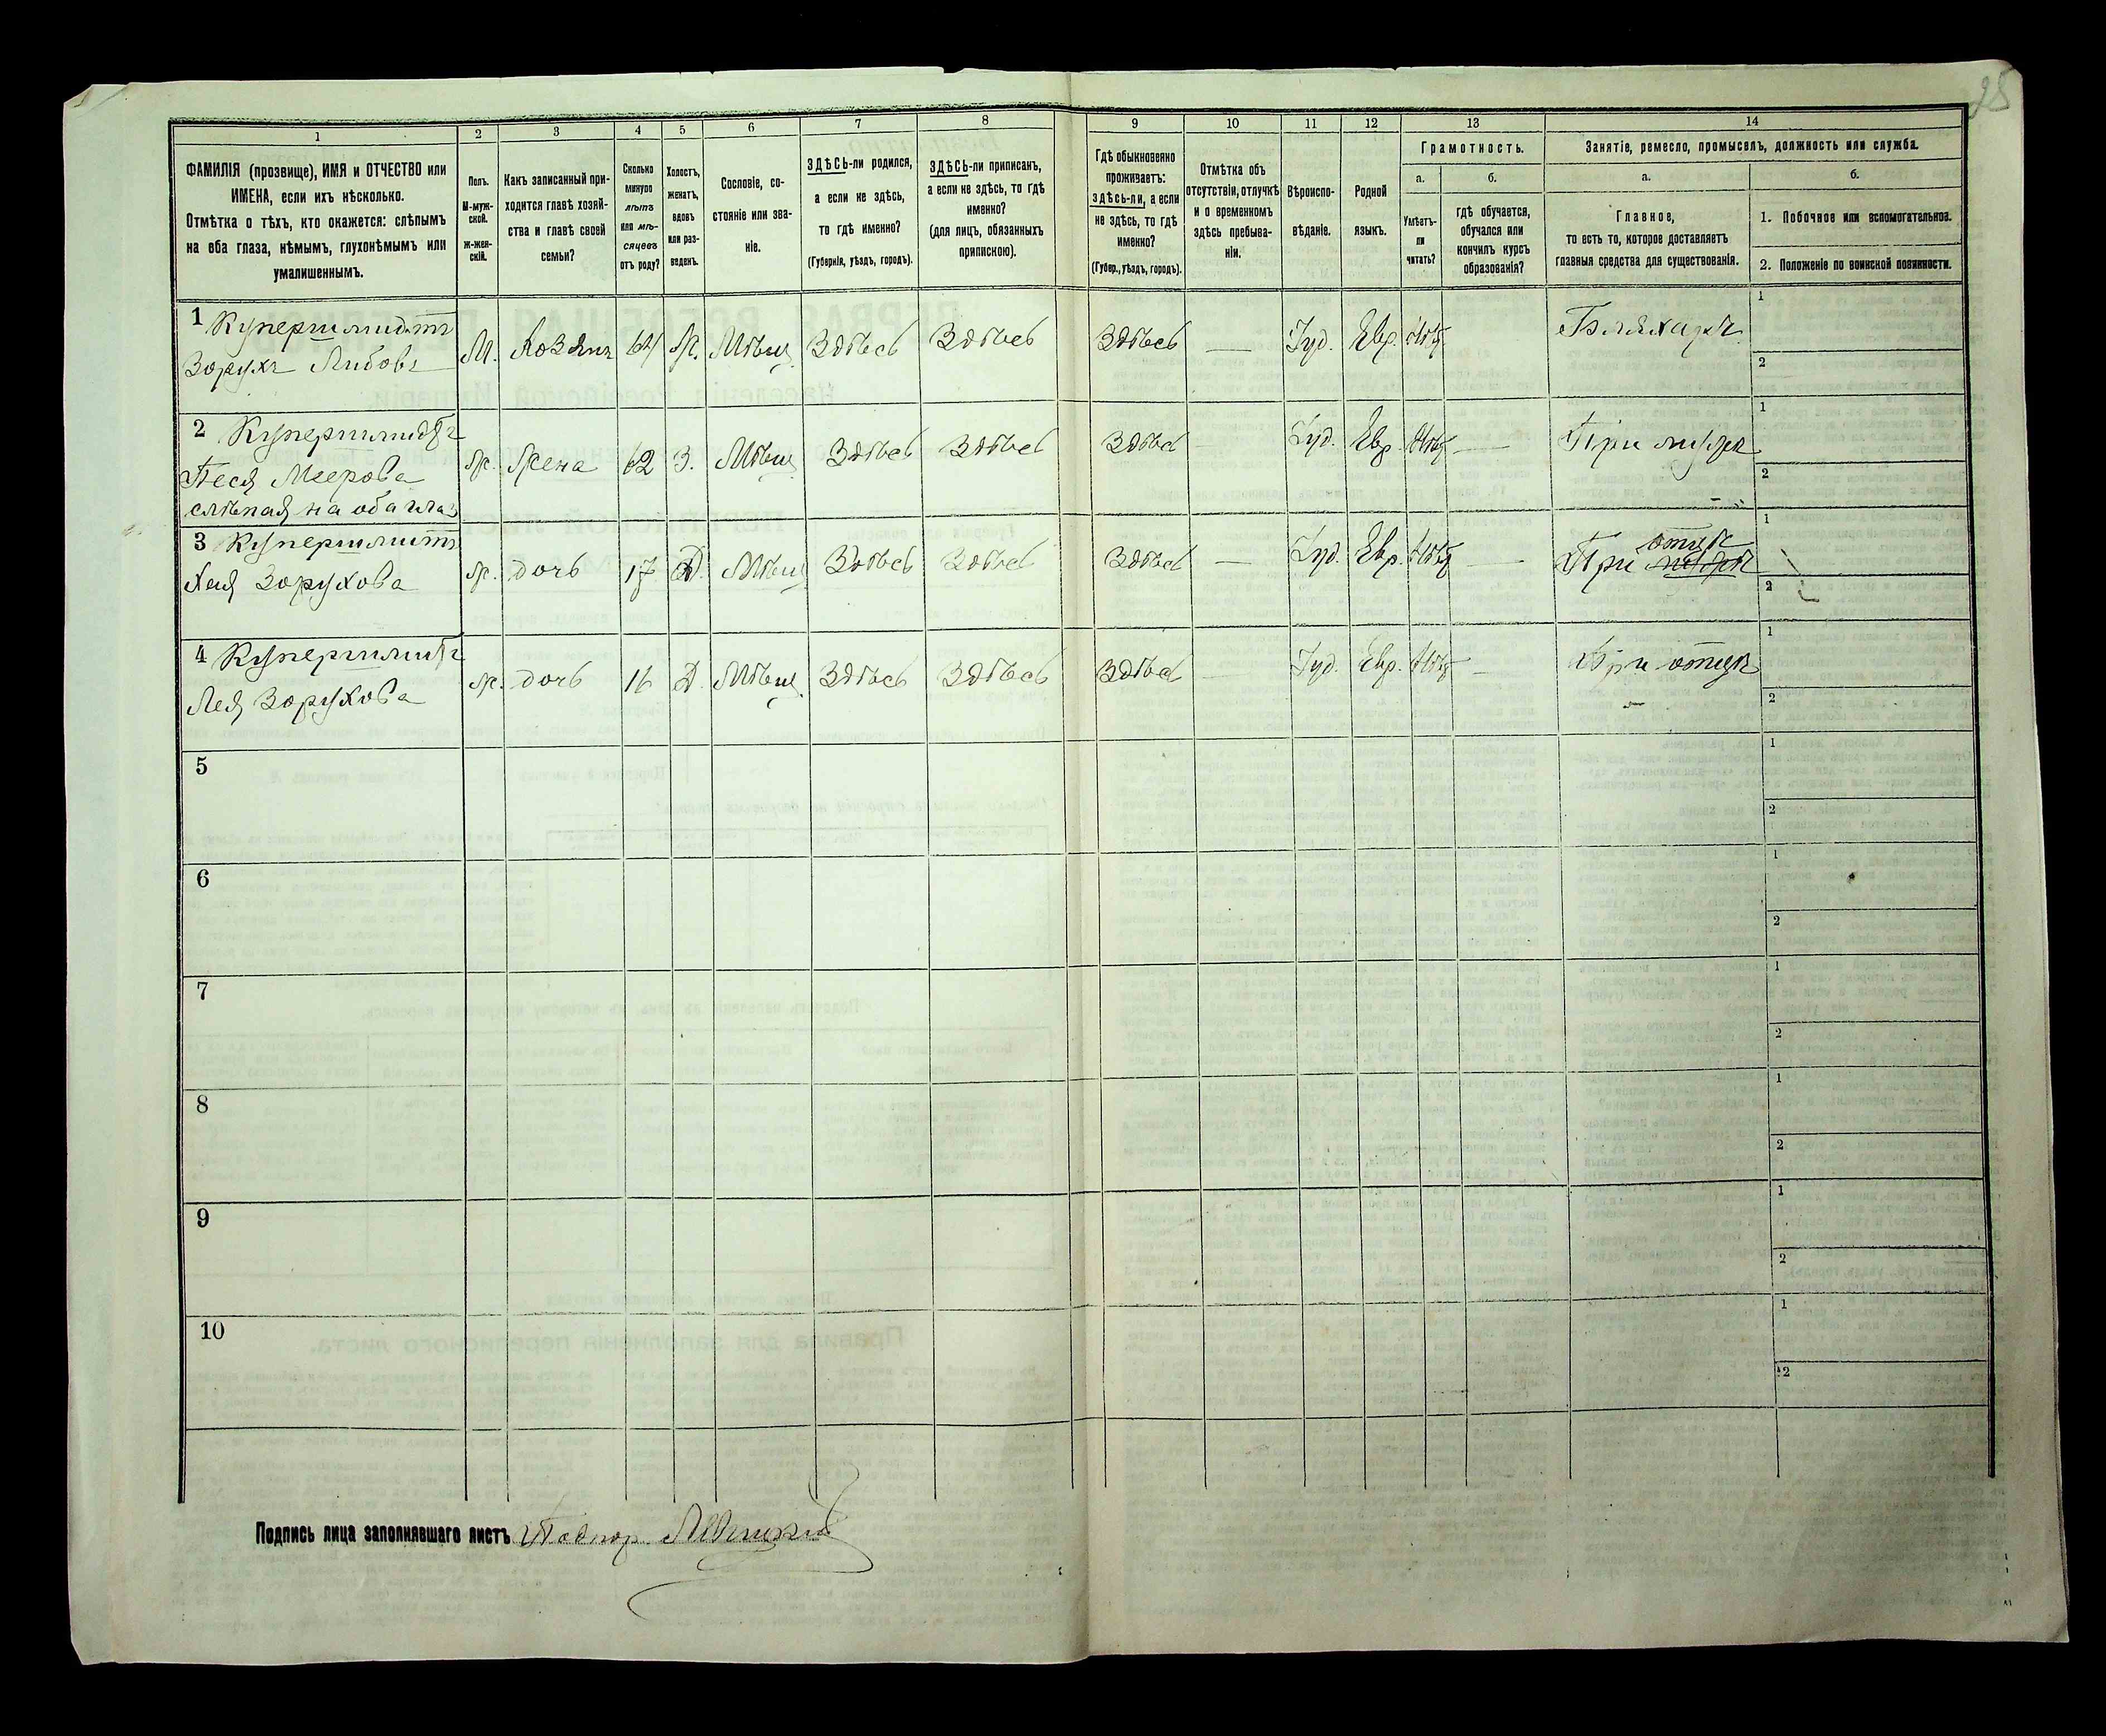 25
1 2 3 4 5 6 7 8 9 10 11 12 13 14
ФАМИЛІЯ (прозвище), ИМЯ и ОТЧЕСТВО или
ИМЕНА, если ихъ нѣсколько.
Отмѣтка о тѣхъ, кто окажется: слѣпымъ
на оба глаза, нѣмымъ, глухонѣмымъ или
умалишеннымъ.
Полъ.
М-муж-
ской.
Ж-жен-
скій.
Какъ записанный при-
ходится главѣ хозяй-
ства и главѣ своей
семьи?
Сколько
минуло
лѣтъ
или мѣ-
сяцевъ
отъ роду?
Холостъ,
женатъ,
вдовъ
или раз-
веденъ.
Сословіе, со-
стояніе или зва-
ніе.
ЗДѢСЬ-ли родился,
а если не здѣсь,
то гдѣ именно?
(Губернія, уѣздъ, городъ).
ЗДѢСЬ-ли приписанъ,
а если не здѣсь, то гдѣ
именно?
(для лицъ, обязанныхъ
припискою).
Гдѣ обыкновенно
проживаетъ:
здѣсь-ли, а если
не здѣсь, то гдѣ
именно?
(Губер., уѣздъ, городъ).
Отмѣтка объ
отсутствіи, отлучкѣ
и о временномъ
здѣсь пребыва-
ніи.
Вѣроиспо-
вѣданіе.
Родной
языкъ.
Грамотность.
а.
Умѣетъ-
ли
читать?
б.
гдѣ обучается,
обучался или
кончилъ курсъ
образованія?
Занятіе, ремесло, промыселъ, должность или служба.
а.
Главное,
то есть то, которое доставляетъ
главныя средства для существованія.
б.
1. Побочное или вспомогательное.
2. Положеніе по воинской повинности.
1 Купершмидтъ
Зорухъ Либовъ М. Хозяинъ 64 Ж. Мѣщ. Здѣсь Здѣсь Здѣсь — Іуд. Евр. Нѣтъ Бляхаръ 1
2
2 Купершмидтъ
Песя Меерова Ж. Жена 62 З. Мѣщ. Здѣсь Здѣсь Здѣсь — Іуд. Евр. Нѣтъ — При мужѣ 1
слѣпая на оба глаз 2
3 Купершмитъ
Хая Зорухова Ж. дочь 17 Д. Мѣщ. Здѣсь Здѣсь Здѣсь — Іуд. Евр. Нѣтъ — При отцѣ 1
2
4 Купершмитъ
Лея Зорухова Ж. дочь 16 Д. Мѣщ. Здѣсь Здѣсь Здѣсь — Іуд. Евр. Нѣтъ — При отцѣ 1
2
5 1
2
6 1
2
7 1
2
8 1
2
9 1
2
10 1
2
Подпись лица заполнявшаго листъ